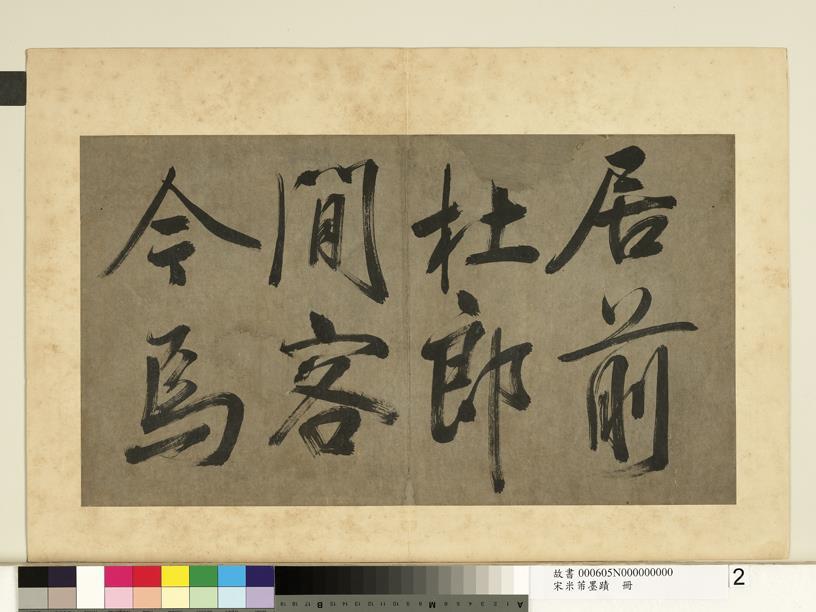 居前
杜郎
閒客
今焉
故書 000605N000000000
宋米芾墨蹟 冊
2